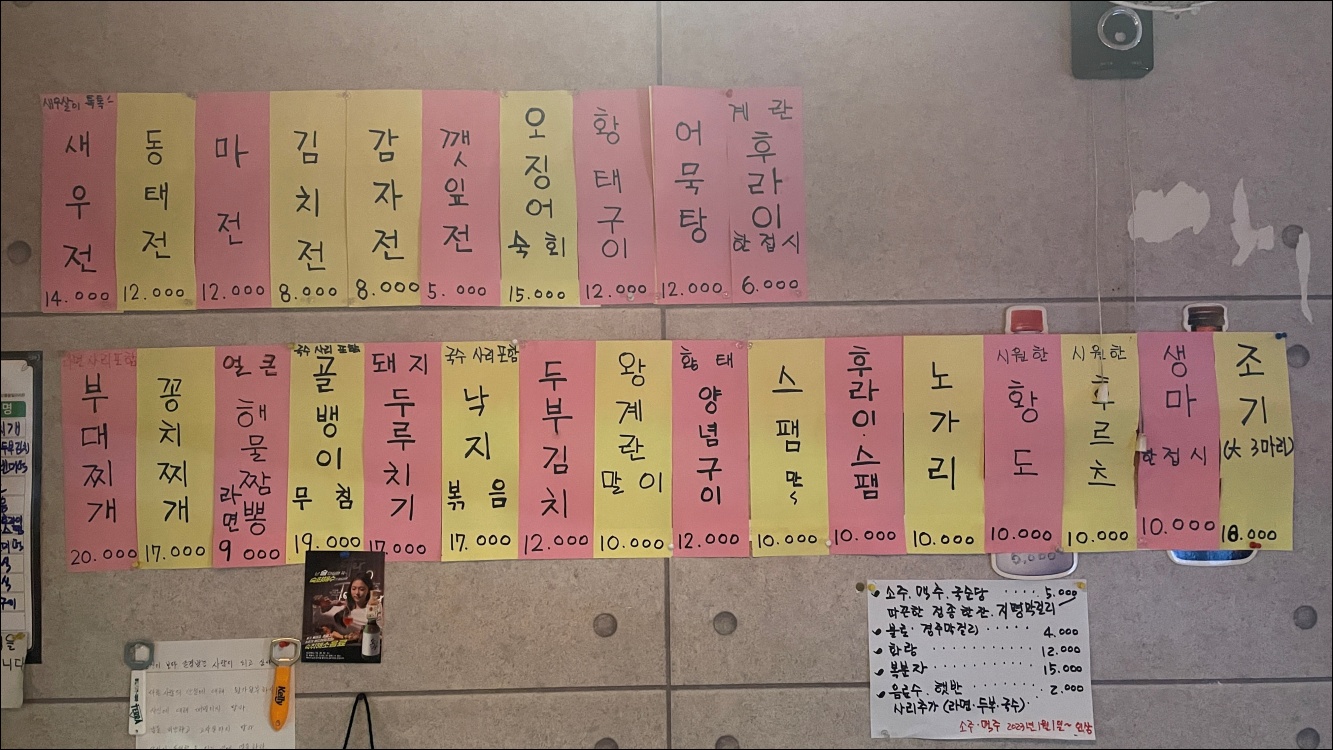 새우살이 톡톡
새우전
14.000
동태전
12.000
마전
12.000
김치전
8.000
감자전
8.000
깻잎전
5.000
오징어
숙회
15.000
황태구이
12.000
어묵탕
12.000
계란
후라이
한접시
6.000
라면사리포함
부대찌개
20.000
꽁치찌개
17.000
얼큰
해물짬뽕
라면
9000
국수 사리 포함
골뱅이
무침
19.000
돼지
두루치기
17.000
국수 사리포함
낙지
볶음
17.000
두부김치
12.000
왕계란
말이
10.000
황태
양념구이
12.000
스팸
10.000
후라이·스팸
10.000
노가리
10.000
시원한
황도
10.000
시원한
후르츠
10.000
생마
한접시
10.000
조기
(大 3마리)
18.000
5,000
소주. 맥주. 국순당 ······ 5.000
따끈한 정종 한잔. 지평막걸리
불로·경주막걸리 ······ 4.000
화랑 ······ 12.000
복분자 ······ 15.000
음료수. 햇반 ······ 2.000
사리추가 (라면·두부·국수)
소주·맥주 2023년 1월 1일~ 인상
Kelly